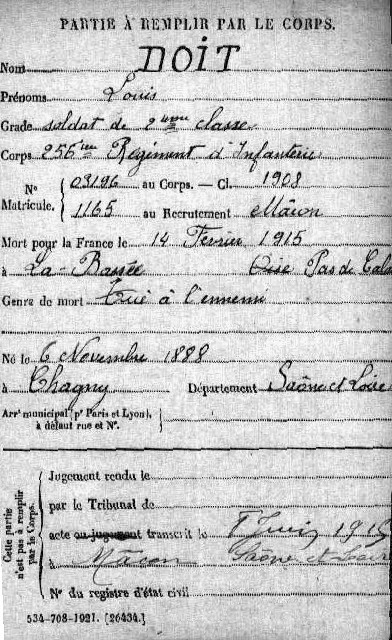 PARTIE À REMPLIR PAR LE CORPS.
Nom DOIT
Prénoms Louis
Grade soldat de 2ème classe
Corps 256ème Régiment d'Infanterie
N° Matricule. 03196 au Corps. — Cl. 1908
1165 au Recrutement Mâcon
Mort pour la France le 14 Février 1915
à La-Bassée Oise Pas de Cala
Genre de mort Tué à l'ennemi
Né le 6 Novembre 1888
à Chagny Département Saône et Loire
Arr' municipal (p' Paris et Lyon), à défaut rue et N°.
Cette partie n'est pas à remplir par le Corps.
Jugement rendu le
par le Tribunal de
acte ou jugement transcrit le 8 Juin 1915
à Macon Saône et Loire
N° du registre d'état civil
534-708-1921. [26434.]